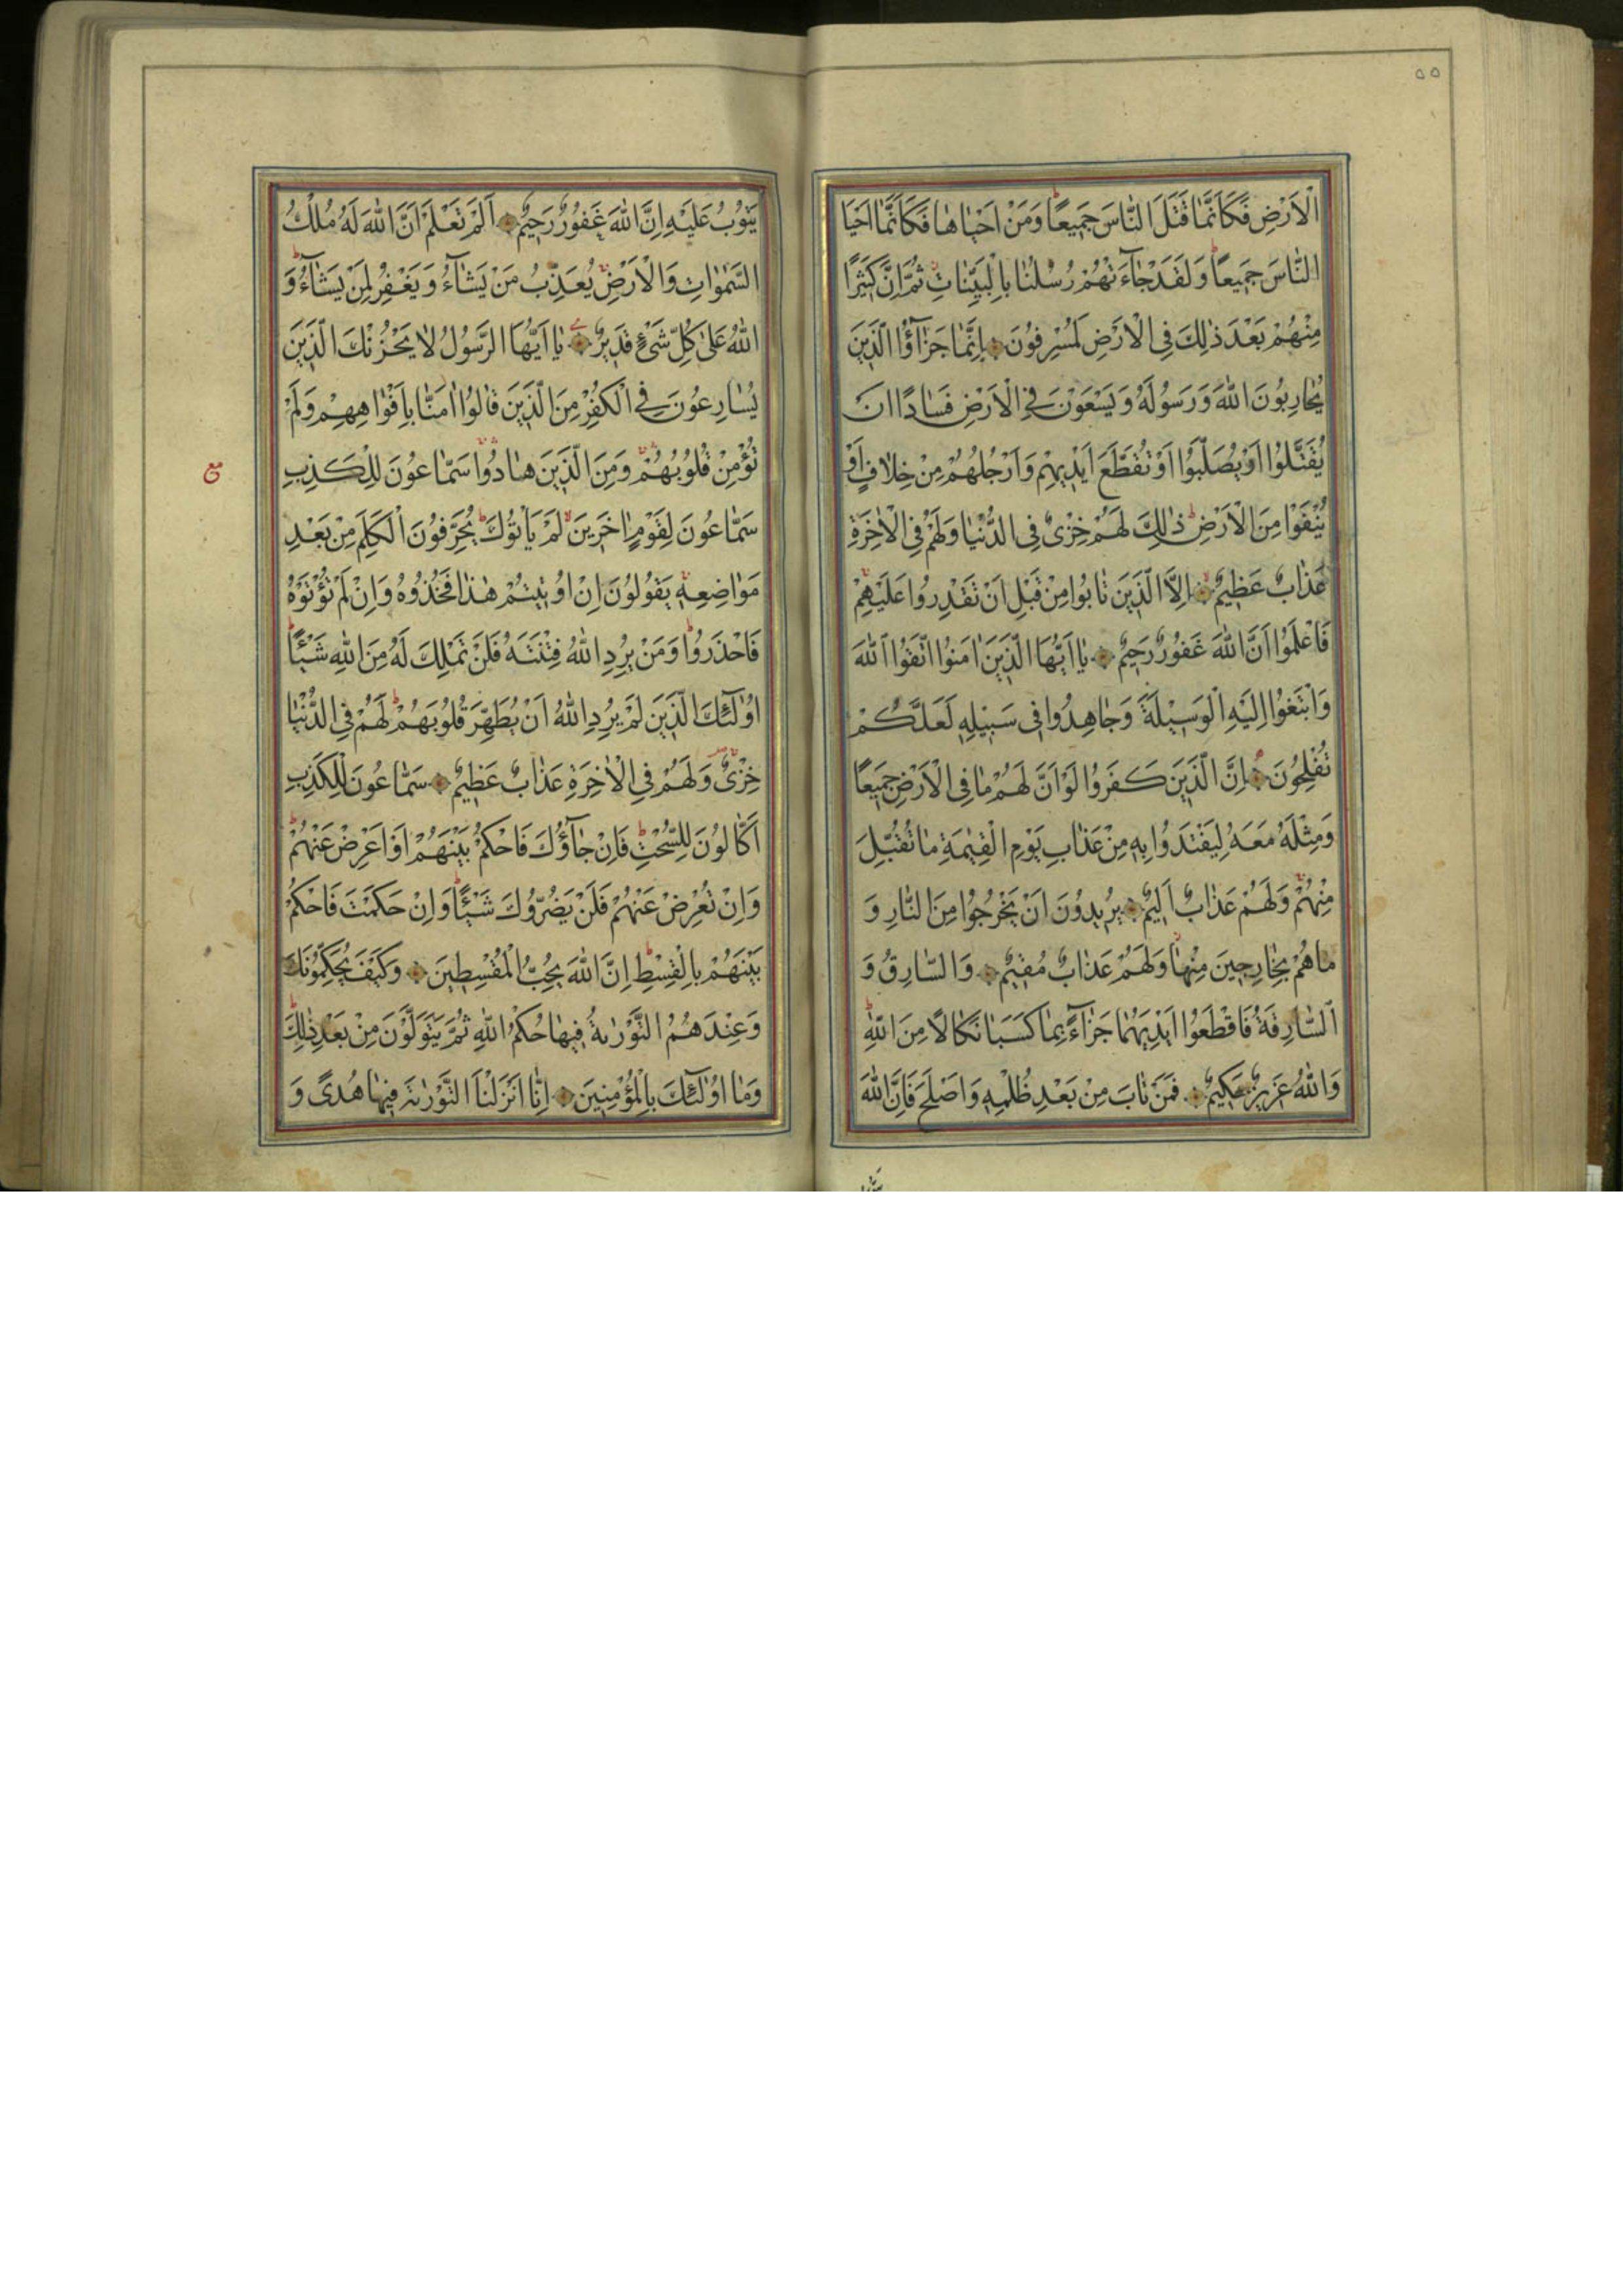 ٥٥
الْاَرْضِ فَكَاَنَّمَا قَتَلَ النَّاسَ جَمٖيعًا وَمَنْ اَحْيَاهَا فَكَاَنَّمَا اَحْيَا
النَّاسَ جَمٖيعًا وَلَقَدْ جَٓاءَتْهُمْ رُسُلُنَا بِالْبَيِّنَاتِ ثُمَّ اِنَّ كَثٖيرًا
مِنْهُمْ بَعْدَ ذٰلِكَ فِى الْاَرْضِ لَمُسْرِفُونَ اِنَّمَا جَزٰٓؤُا الَّذٖينَ
يُحَارِبُونَ اللّٰهَ وَرَسُولَهُ وَيَسْعَوْنَ فِى الْاَرْضِ فَسَادًا اَنْ
يُقَتَّلُوا اَوْ يُصَلَّبُوا اَوْ تُقَطَّعَ اَيْدٖيهِمْ وَاَرْجُلُهُمْ مِنْ خِلَافٍ اَوْ
يُنْفَوْا مِنَ الْاَرْضِ ذٰلِكَ لَهُمْ خِزْىٌ فِى الدُّنْيَا وَلَهُمْ فِى الْاٰخِرَةِ
عَذَابٌ عَظٖيمٌ اِلَّا الَّذٖينَ تَابُوا مِنْ قَبْلِ اَنْ تَقْدِرُوا عَلَيْهِمْ
فَاعْلَمُوا اَنَّ اللّٰهَ غَفُورٌ رَحٖيمٌ يَا اَيُّهَا الَّذٖينَ اٰمَنُوا اتَّقُوا اللّٰهَ
وَابْتَغُوا اِلَيْهِ الْوَسٖيلَةَ وَجَاهِدُوا فٖى سَبٖيلِهٖ لَعَلَّكُمْ
تُفْلِحُونَ اِنَّ الَّذٖينَ كَفَرُوا لَوْ اَنَّ لَهُمْ مَا فِى الْاَرْضِ جَمٖيعًا
وَمِثْلَهُ مَعَهُ لِيَفْتَدُوا بِهٖ مِنْ عَذَابِ يَوْمِ الْقِيٰمَةِ مَا تُقُبِّلَ
مِنْهُمْ وَلَهُمْ عَذَابٌ اَلٖيمٌ يُرٖيدُونَ اَنْ يَخْرُجُوا مِنَ النَّارِ وَ
مَا هُمْ بِخَارِجٖينَ مِنْهَا وَلَهُمْ عَذَابٌ مُقٖيمٌ وَالسَّارِقُ وَ
السَّارِقَةُ فَاقْطَعُوا اَيْدِيَهُمَا جَزَٓاءً بِمَا كَسَبَا نَكَالًا مِنَ اللّٰهِ
وَاللّٰهُ عَزٖيزٌ حَكٖيمٌ فَمَنْ تَابَ مِنْ بَعْدِ ظُلْمِهٖ وَاَصْلَحَ فَاِنَّ اللّٰهَ
يَتُوبُ عَلَيْهِ اِنَّ اللّٰهَ غَفُورٌ رَحٖيمٌ اَلَمْ تَعْلَمْ اَنَّ اللّٰهَ لَهُ مُلْكُ
السَّمٰوَاتِ وَالْاَرْضِ يُعَذِّبُ مَنْ يَشَٓاءُ وَيَغْفِرُ لِمَنْ يَشَٓاءُ وَ
اللّٰهُ عَلٰى كُلِّ شَىْءٍ قَدٖيرٌ يَا اَيُّهَا الرَّسُولُ لَا يَحْزُنْكَ الَّذٖينَ
يُسَارِعُونَ فِى الْكُفْرِ مِنَ الَّذٖينَ قَالُوا اٰمَنَّا بِاَفْوَاهِهِمْ وَلَمْ
تُؤْمِنْ قُلُوبُهُمْ وَمِنَ الَّذٖينَ هَادُوا سَمَّاعُونَ لِلْكَذِبِ
مع
سَمَّاعُونَ لِقَوْمٍ اٰخَرٖينَ لَمْ يَاْتُوكَ يُحَرِّفُونَ الْكَلِمَ مِنْ بَعْدِ
مَوَاضِعِهٖ يَقُولُونَ اِنْ اُوتٖيتُمْ هٰذَا فَخُذُوهُ وَاِنْ لَمْ تُؤْتَوْهُ
فَاحْذَرُوا وَمَنْ يُرِدِ اللّٰهُ فِتْنَتَهُ فَلَنْ تَمْلِكَ لَهُ مِنَ اللّٰهِ شَيْـًٔا
اُولٰٓئِكَ الَّذٖينَ لَمْ يُرِدِ اللّٰهُ اَنْ يُطَهِّرَ قُلُوبَهُمْ لَهُمْ فِى الدُّنْيَا
خِزْىٌ وَلَهُمْ فِى الْاٰخِرَةِ عَذَابٌ عَظٖيمٌ سَمَّاعُونَ لِلْكَذِبِ
اَكَّالُونَ لِلسُّحْتِ فَاِنْ جَٓاؤُكَ فَاحْكُمْ بَيْنَهُمْ اَوْ اَعْرِضْ عَنْهُمْ
وَاِنْ تُعْرِضْ عَنْهُمْ فَلَنْ يَضُرُّوكَ شَيْـًٔا وَاِنْ حَكَمْتَ فَاحْكُمْ
بَيْنَهُمْ بِالْقِسْطِ اِنَّ اللّٰهَ يُحِبُّ الْمُقْسِطٖينَ وَكَيْفَ يُحَكِّمُونَكَ
وَعِنْدَهُمُ التَّوْرٰيةُ فٖيهَا حُكْمُ اللّٰهِ ثُمَّ يَتَوَلَّوْنَ مِنْ بَعْدِ ذٰلِكَ
وَمَا اُولٰٓئِكَ بِالْمُؤْمِنٖينَ اِنَّا اَنْزَلْنَا التَّوْرٰيةَ فٖيهَا هُدًى وَ